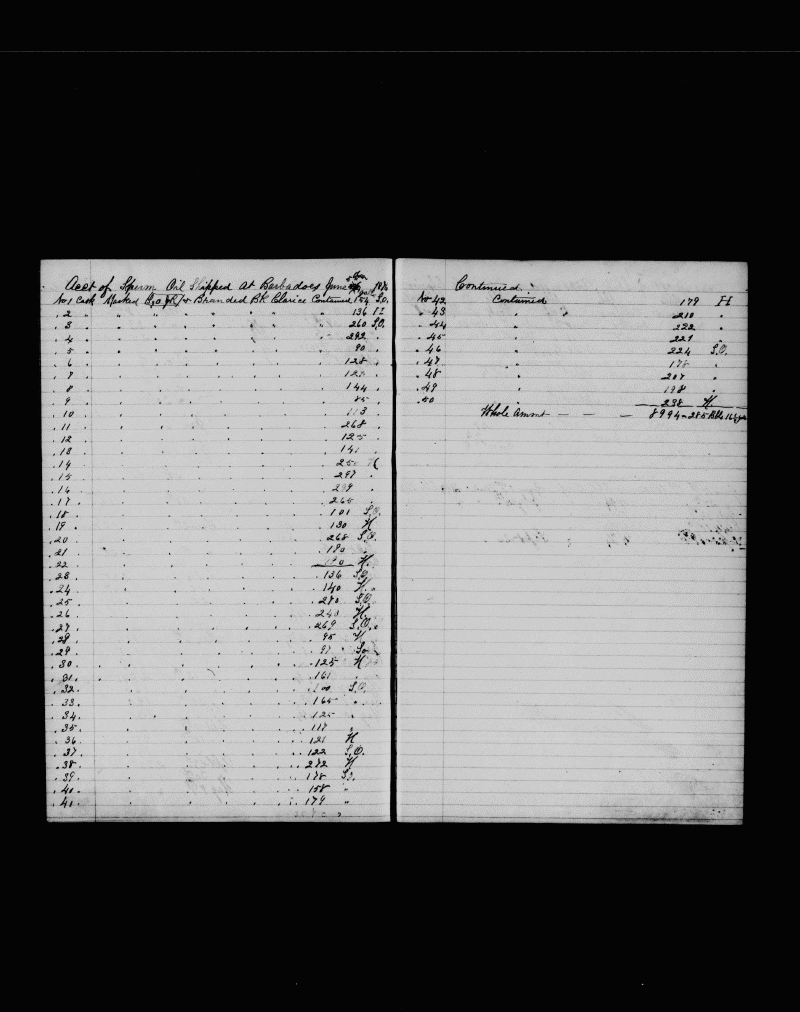 Acct of Sperm Oil Shipped at Barbadoes June
No 1 Cask Marked & Branded Bk Clarice Contained 154 S.O.
" 2 " " " " " " " " 136
" 3 260 S.O.
" 4 292
" 5 90
" 6 128
" 7
" 8 144
" 9 85
" 10 113
" 11 268
" 12 125
" 13
" 14
" 15 297
" 16 299
" 17 265
" 18 101 S.O.
" 19 130 H
" 20 268 S.O.
" 21 180
" 22 H.
" 23 136 S.O.
" 24 140 H.
" 25 270 S.O.
" 26 243 H.
" 27 269 S.O.
" 28 95 H
" 29 So
" 30 125 H
" 31 161
" 32 S.O.
" 33 165 "
" 34 125 "
" 35 117 "
" 36 121 H
" 37 122 S.O.
" 38 272 H
" 39 178 So.
" 40 158 "
" 41 179 "
Continued
No 42 Contained 179 H
" 43 " 210 "
" 44 222 "
" 45 " 221 "
" 46 " 224 S.O.
" 47 178 "
" 48 " 207 "
" 49 198 "
" 50 " 238 H.
Whole Amnt — — — 8994 = 285 Bbls